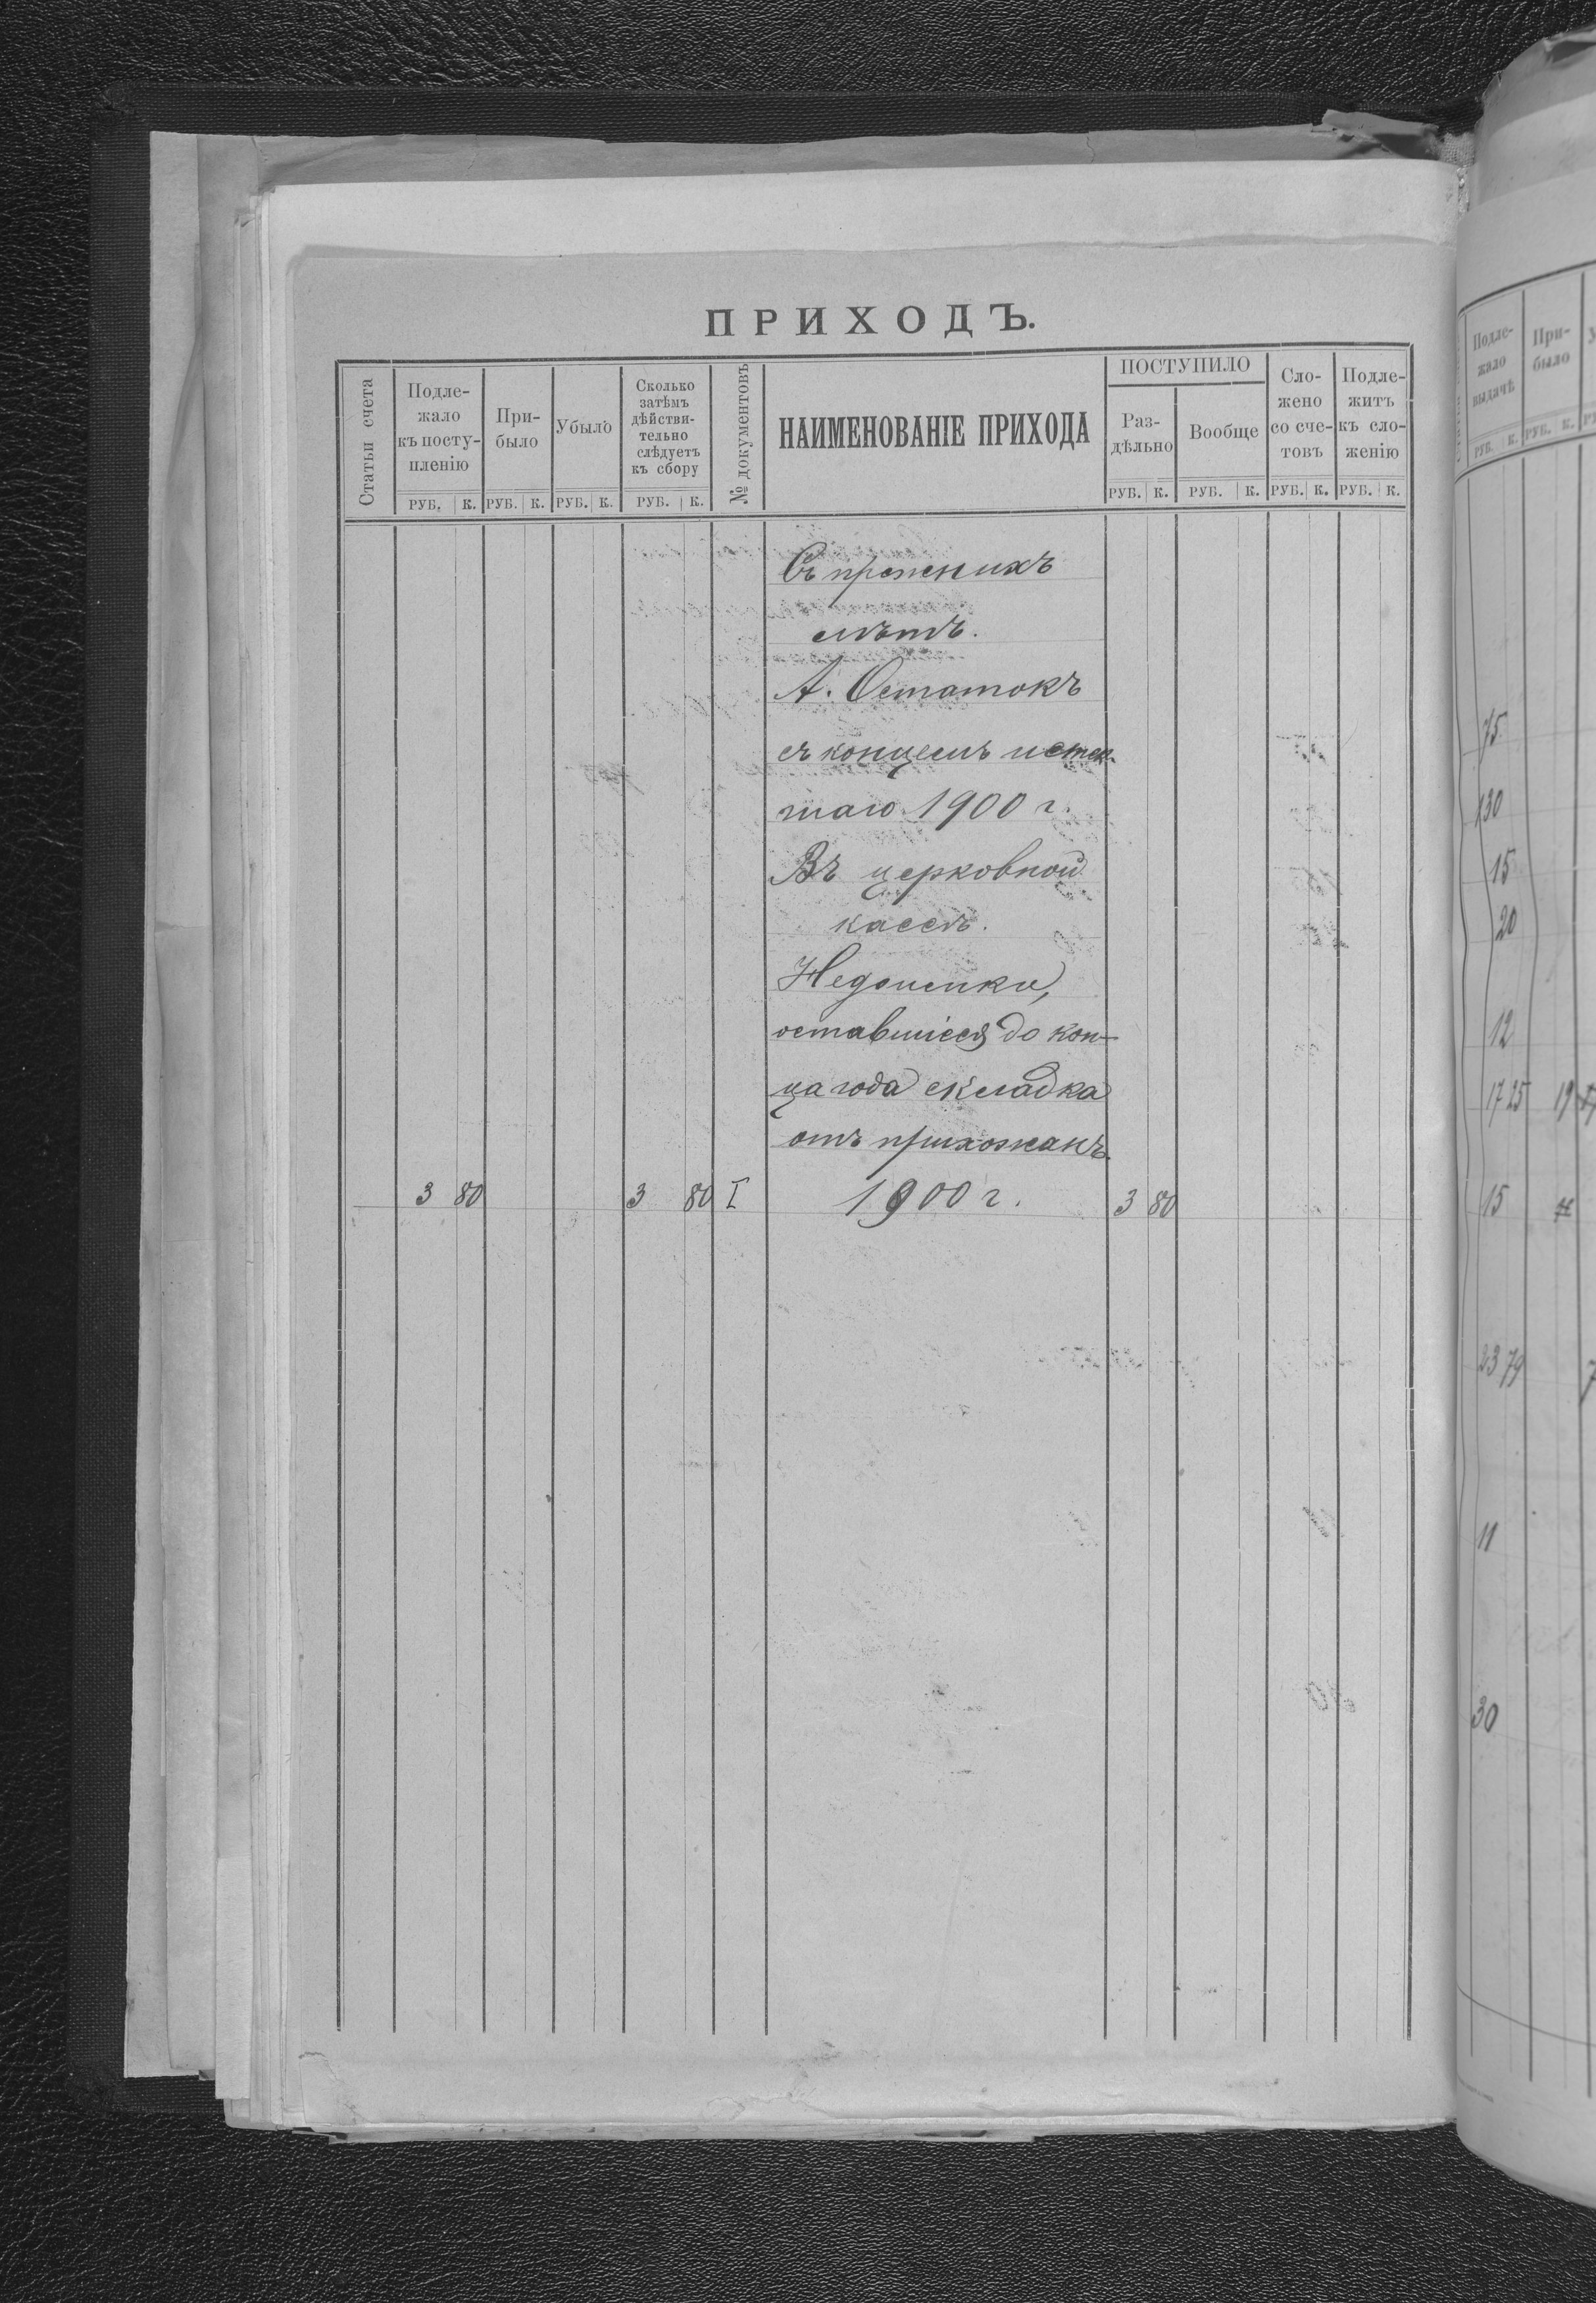 ПРИХОДЪ.
Статьи счета
Подле-
жало
къ посту-
пленію
При-
было
Убыло
Сколько
затѣмъ
дѣйстви-
тельно
слѣдуетъ
къ сбору
№ документовъ
НАИМЕНОВАНІЕ ПРИХОДА
ПОСТУПИЛО
Раз-
дѣльно
Вообще
Сло-
жено
со сче-
товъ
Подле-
житъ
къ сло-
женію
РУБ. К. РУБ. К. РУБ. К. РУБ. К. РУБ. К. РУБ. К. РУБ. К. РУБ. К.
Съ прежнихъ
лѣтъ.
А. Остатокъ
съ концемъ истек-
шаго 1900 г.
Въ церковной
кассѣ.
Недоимки,
оставшіеся до кон-
ца года складка
отъ прихожанъ.
3 80 3 80 I 1900 г. 3 80
Подле-
жало
выдачѣ
При-
было
РУБ. К. РУБ. К.
75
130
15
20
12
17 25 19
15
23 79
11
30